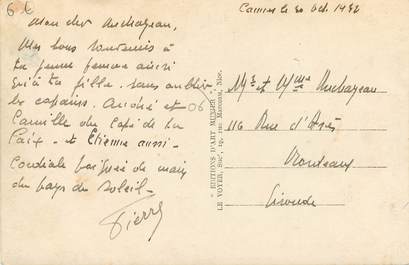 6 €
Cannes le 30 Oct. 1932
Mon cher Aubazeau,
Mes bons souvenirs à
ta jeune femme ainsi
qu'à ta fille. sans oublier
les copains. André et 06
Camille du Café de la
Paix - et Etienne aussi -
Cordiale poignée de main
du pays du soleil -
Pierre
" EDITIONS D'ART MUNIER "
LE VOYER, Sucr, 19, rue Nice.
Mr et Mme Aubazeau
116 Rue d'Arès
Bordeaux
Gironde